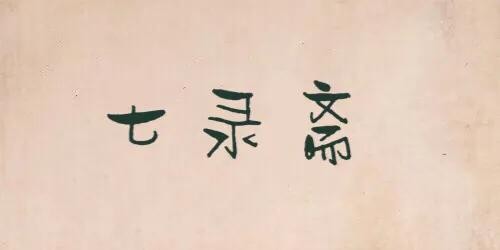 七录斋